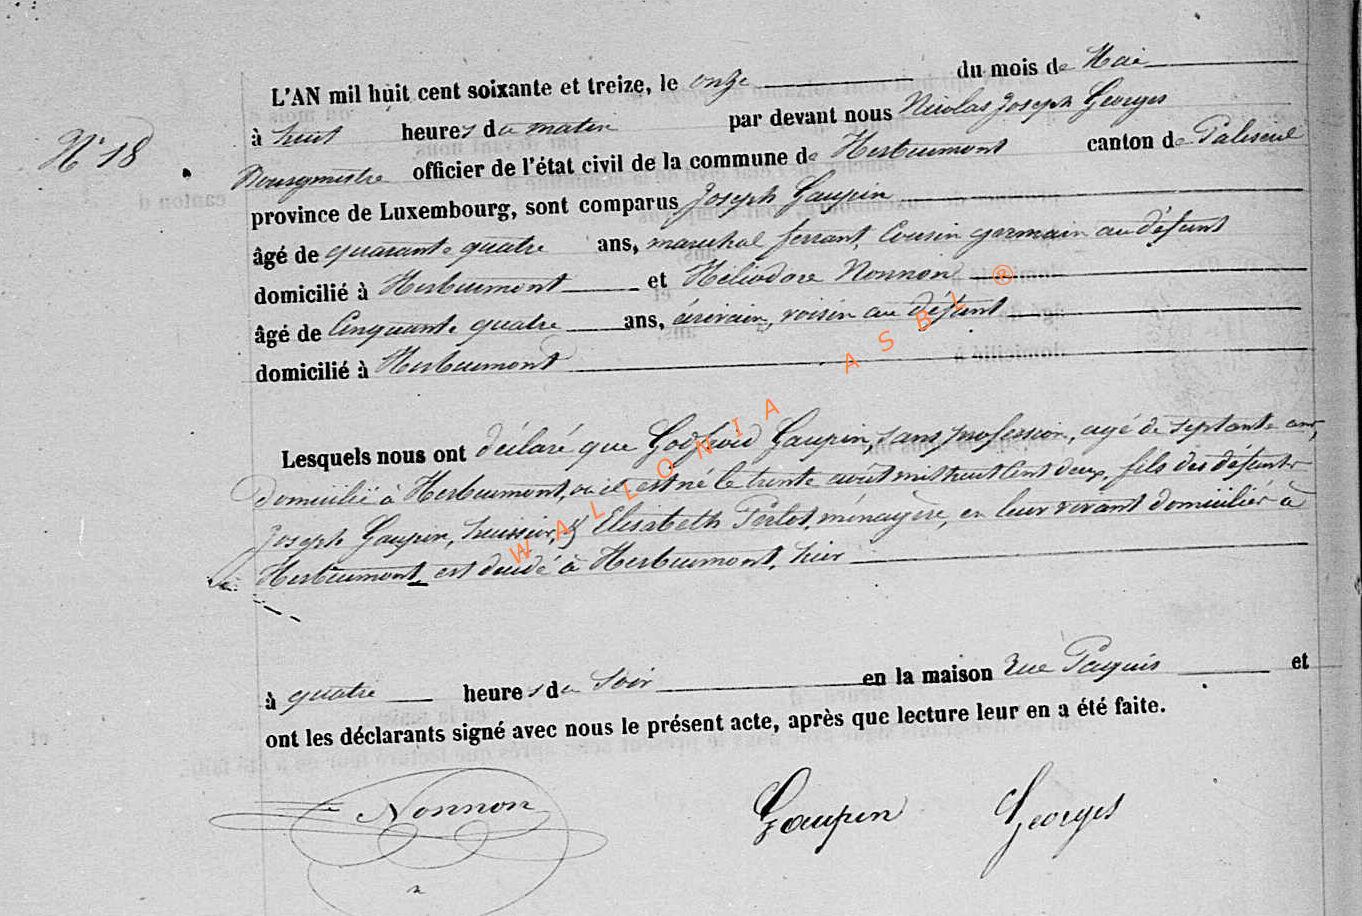 L'AN mil huit cent soixante et treize, le onze du mois de Mai
à huit heures du matin par devant nous Nicolas Joseph Georges
N° 18
Bourgmestre officier de l'état civil de la commune de Herbeumont canton de Paliseul
province de Luxembourg, sont comparus Joseph Gaupin
âgé de quarante quatre ans, marechal ferrant, Cousin germain au défunt
domicilié à Herbeumont et Héliodore Nonnon
âgé de Cinquante quatre ans, écrivain, voisin au défunt
domicilié à Herbeumont
WALLONIA ASBL ®
Lesquels nous ont déclaré que Godfroid Gaupin, sans profession, agé de septante ans,
domicilié à Herbeumont, où il est né le trente août mil huit Cent deux, fils des défunts
Joseph Gaupin, huissier, & Elisabeth Perlot, ménagère, en leur vivant domiciliés à
Herbeumont est décédé à Herbeumont, hier
à quatre heures du Soir en la maison rue Paquis et
ont les déclarants signé avec nous le présent acte, après que lecture leur en a été faite.
Nonnon Gaupin Georges